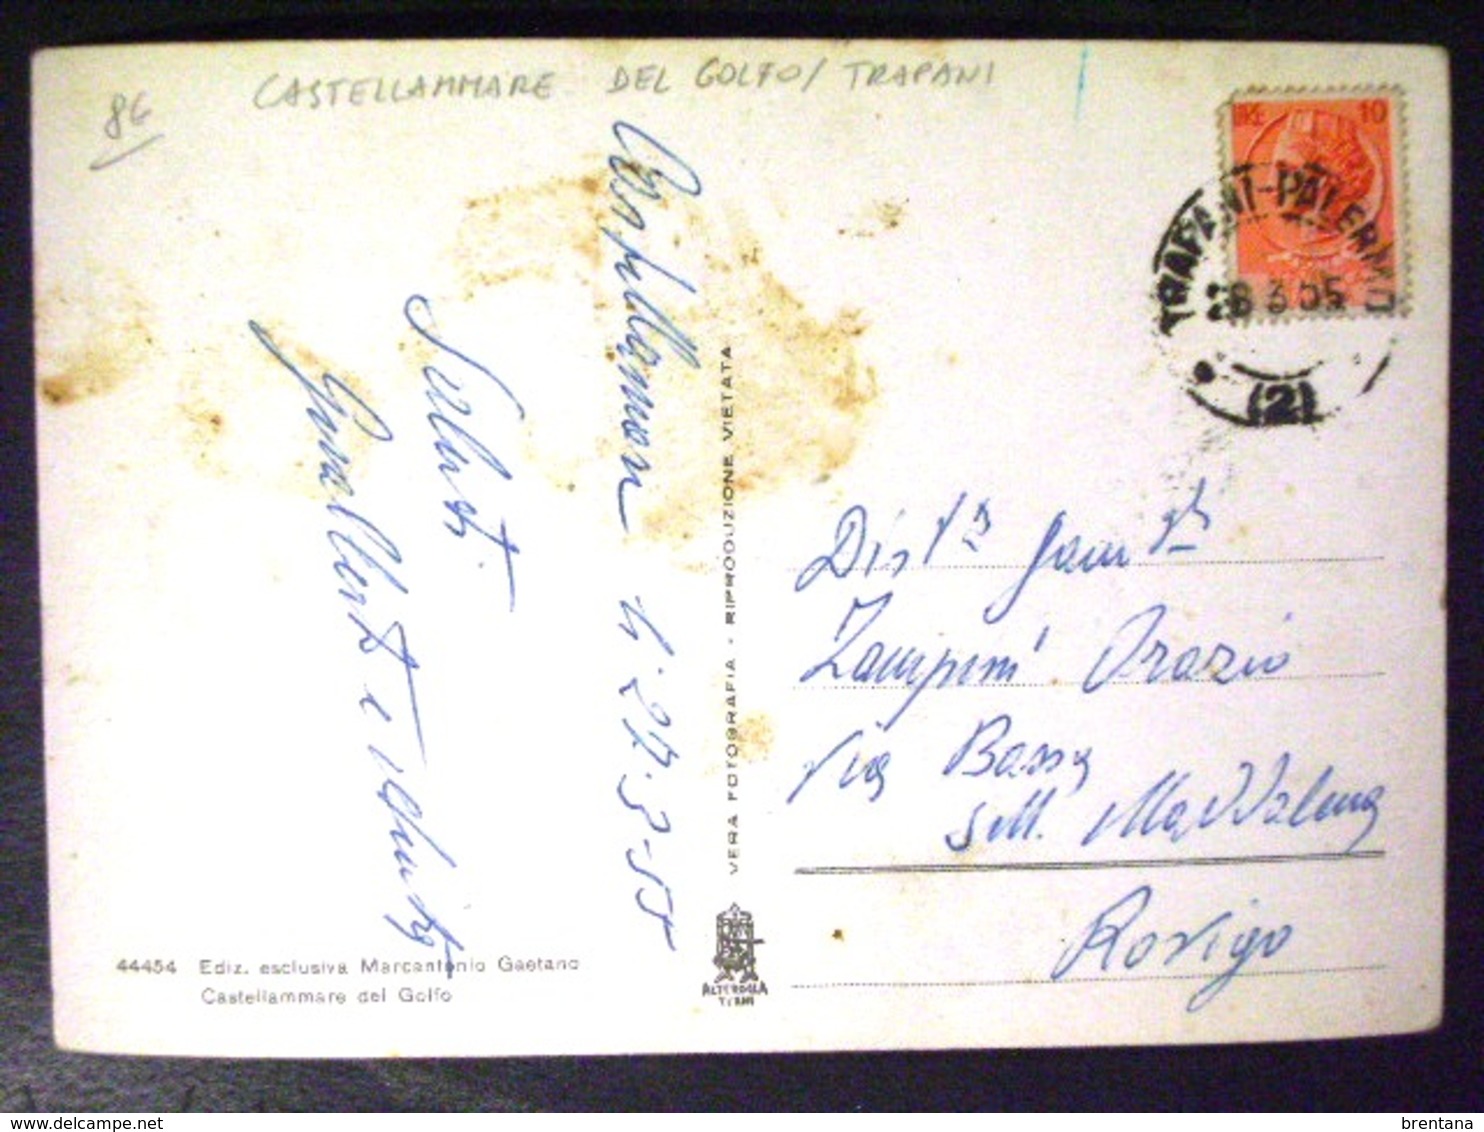 86
CASTELLAMMARE DEL GOLFO / TRAPANI
LIRE 10
TRAPANI-PALERMO
28.3.55
(2)
Castellammare li 27-3-55
Saluti
Gualberto e
Dist/ma Fam/glia
Zampini Orazio
Via Bassa
S.M. Maddalena
Rovigo
VERA FOTOGRAFIA - RIPRODUZIONE VIETATA
ALTEROCCA
TERNI
44454 Ediz. esclusiva Marcantonio Gaetano
Castellammare del Golfo
brentana